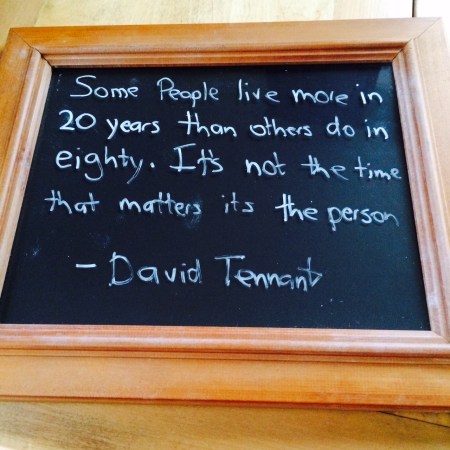 Some People live more in
20 years than others do in
eighty. It's not the time
that matters its the person
- David Tennant